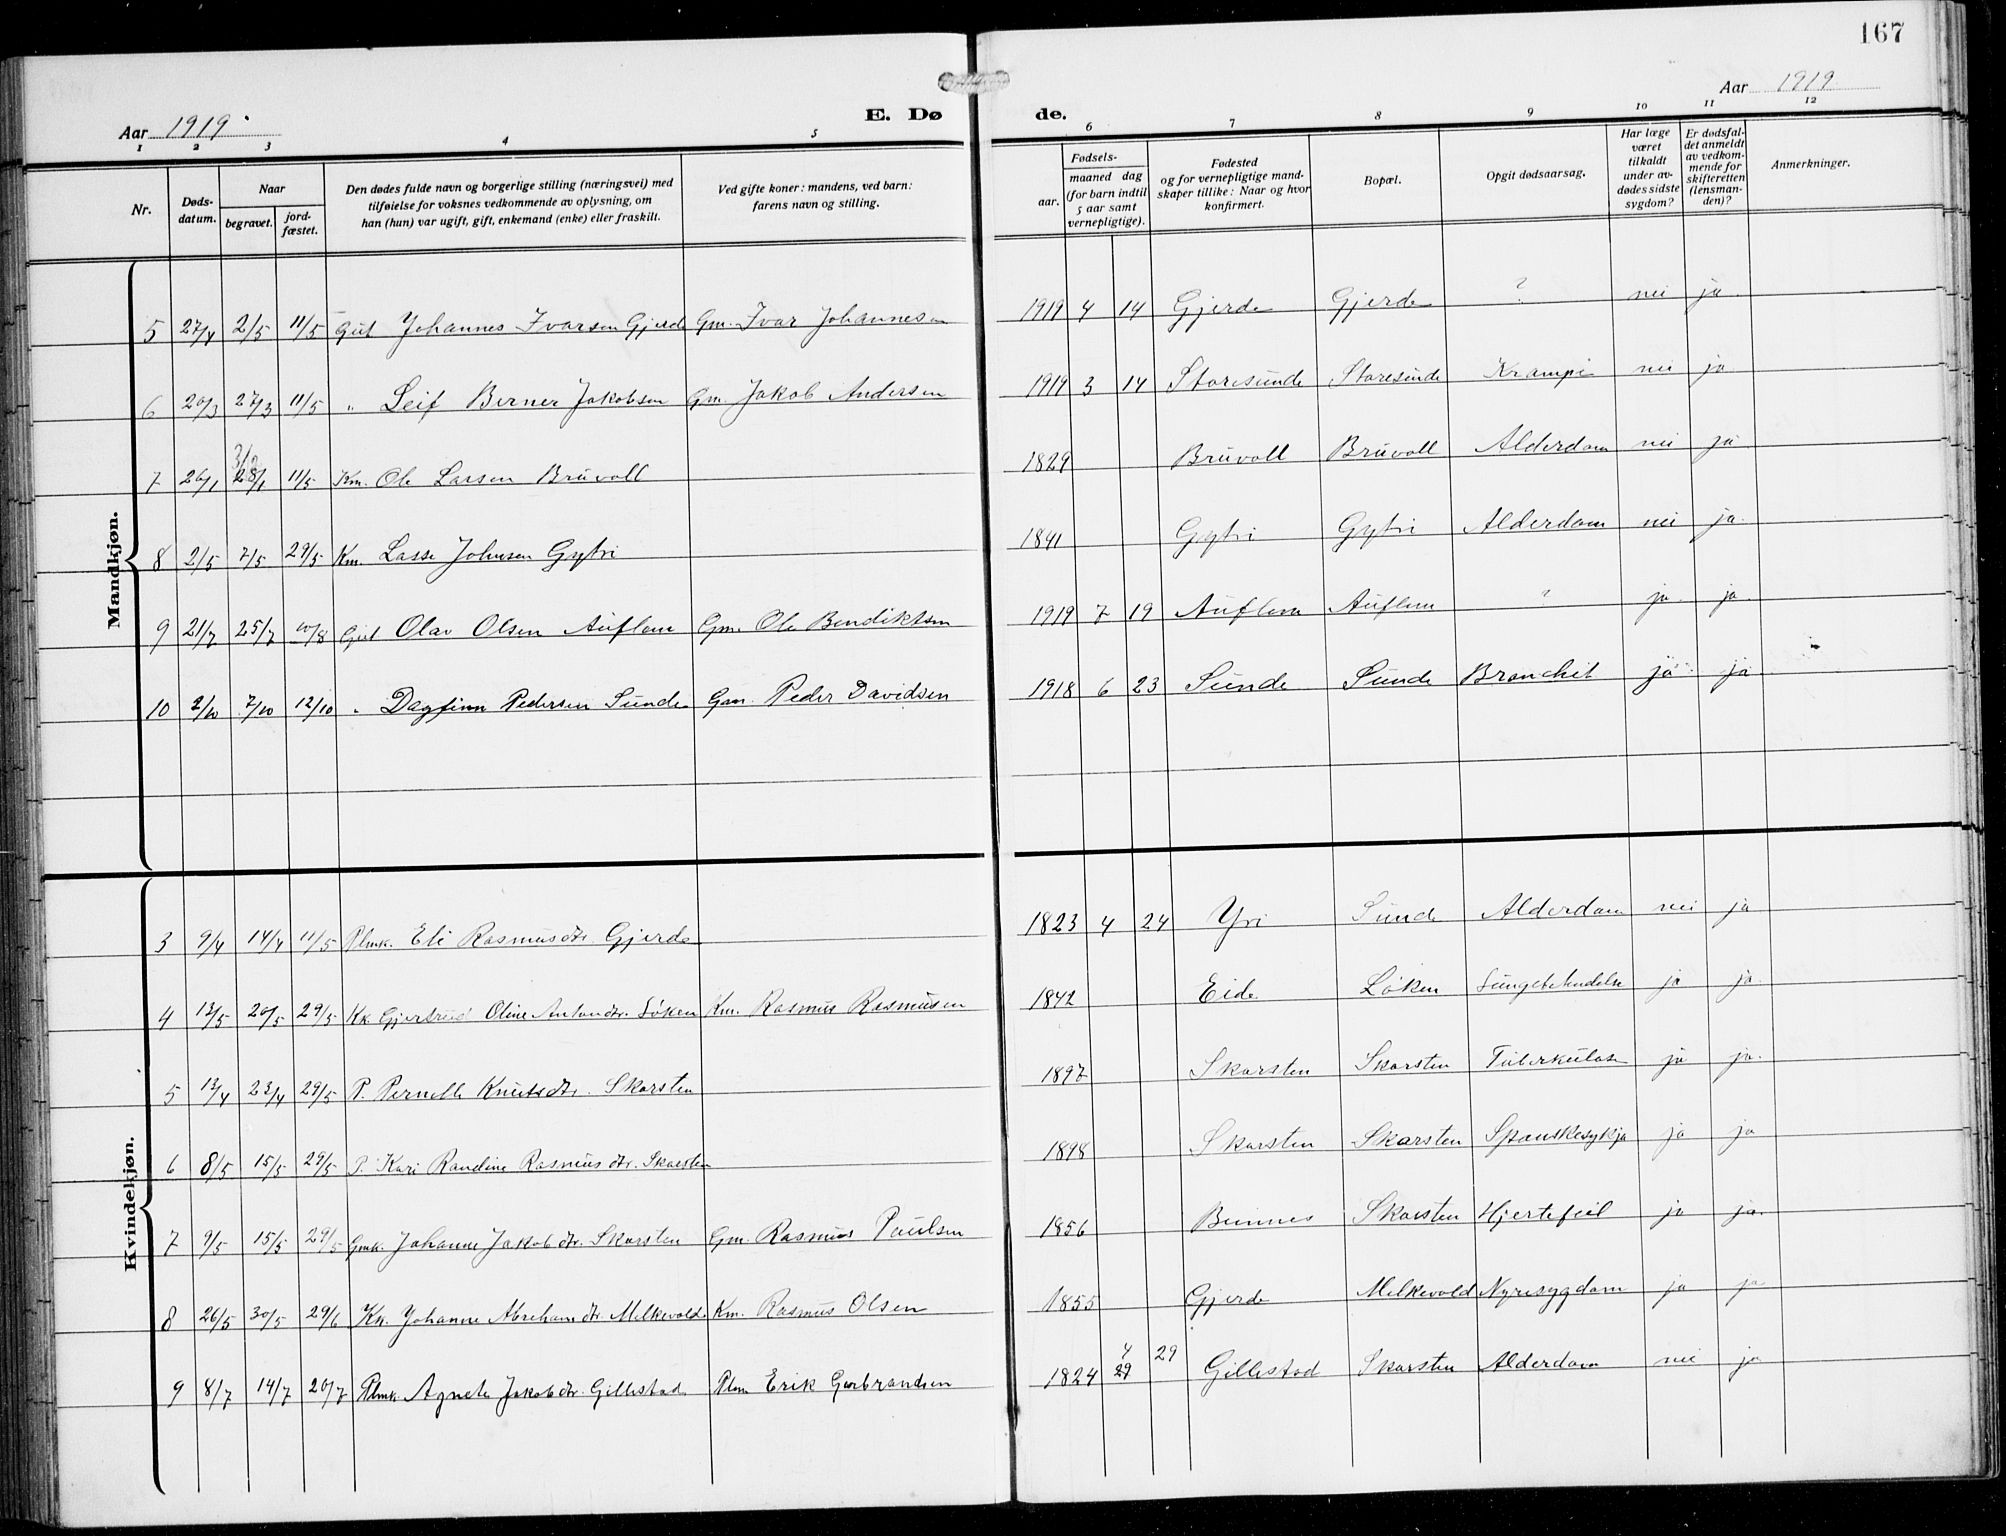 167
Aar 1919.
E. Dø de.
Aar 1919
1 2 3 4 5 6 7 8 9 10 11 12
Nr.
Døds-
datum.
Naar
begravet.
jord-
fæstet.
Den dødes fulde navn og borgerlige stilling (næringsvei) med
tilføielse for voksnes vedkommende av oplysning, om
han (hun) var ugift, gift, enkemand (enke) eller fraskilt.
Ved gifte koner: mandens, ved barn:
farens navn og stilling.
Fødsels-
aar.
maaned dag
(for barn indtil
5 aar samt
vernepligtige).
Fødested
og for vernepligtige mand-
skaper tillike: Naar og hvor
konfirmert.
Bopæl.
Opgit dødsaarsag.
Har læge
været
tilkaldt
under av-
dødes sidste
sygdom?
Er dødsfal-
det anmeldt
av vedkom-
mende for
skifteretten
(lensman-
den)?
Anmerkninger.
Mandkjøn.
5 27/4 2/5 11/5 Gut Johannes Ivarsen Gjerde Gm. Ivar Johannesen 1919 4 14 Gjerde Gjerde ? nei ja.
6 20/3 27/3 11/5 " Leif Berner Jakobsen Gm. Jakob Andersen 1919 3 14 Storesunde Storesunde Krampe nei ja
7 26/1 28/1 11/5 Km. Ole Larsen Bruvoll 1829 Bruvoll Bruvoll Alderdom nei ja
8 2/5 7/5 29/5 Km. Lasse Johnsen Gytri 1841 Gytri Gytri Alderdom nei ja.
9 21/7 25/7 10/8 Gut Olav Olsen Auflem Gm. Ole Bendiktsen 1919 7 19 Auflem Auflem ? ja. ja.
10 2/10 7/10 12/10 " Dagfinn Pedersen Sunde Gm. Peder Davidsen 1918 6 23 Sunde Sunde Bronchit ja ja.
Kvindekjøn.
3 9/4 14/4 11/5 Plmk. Eli Rasmusdtr. Gjerde 1823 4 24 Yri Sunde Alderdom nei ja
4 13/5 20/5 29/5 Kk. Gjertrud Oline Antondtr. Løken Km. Rasmus Rasmusen 1842 Eide Løken Lungebetendelse ja ja.
5 13/4 23/4 29/5 P. Pernelle Knutsdtr. Skarsten 1897 Skarsten Skarsten Tuberkulose ja ja.
6 8/5 15/5 29/5 P. Kari Randine Rasmusdtr. Skarsten 1898 Skarsten Skarsten Spanskesykja ja ja
7 9/5 15/5 29/5 Gmk. Johanne Jakobdtr. Skarsten Gm. Rasmus Paulsen 1856 Bunnes Skarsten Hjertefeil ja ja.
8 26/5 30/5 29/6 Kk. Johanne Abrahamdtr. Melkevold Km. Rasmus Olsen 1855 Gjerde Melkevold Nyresygdom ja ja
9 8/7 14/7 20/7 Plmk. Agnete Jakobdtr. Gillestad Plm Erik Gerbrandsen 1824 4 29 Gillestad Skarsten Alderdom nei ja